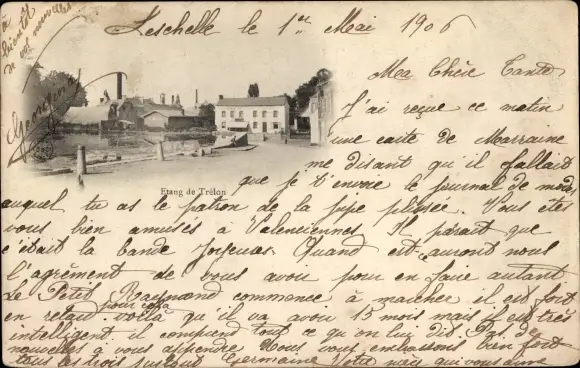 Leschelle le 1er Mai 1906
à
bientôt
de vos nouvelles
Georgina
Ma Chère Tante
J'ai reçue ce matin
une carte de Marraine
me disant qu'il fallait
Etang de Trélon
que je t'envoie le journal de mode
auquel tu as le patron de la jupe plissée. Vous êtes
vous bien amusés à Valenciennes Il parait que
c'était la bande Joyeuse. Quand est-ce auront nous
l'agrément de vous avoir pour en faire autant
Le Petit Raymond commence à marcher il est fort
en retard pour cela voilà qu'il va avoir 15 mois mais il est très
intelligent il comprend tout ce qu'on lui dit. Pas de
nouvelles à vous apprendre Nous vous embrassons bien fort
tous les trois surtout Germaine Votre nièce qui vous aime